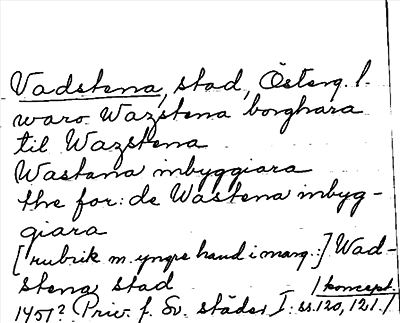 Vadstena, stad, Österg. l.
waro Wazstena borghara
til Wazstena
Wastana inbyggiara
the for: de Wastena inbyg-
giara
[rubrik m. yngre hand i marg.:] Wad-
stena stad
/koncept.
1451? Priv. f. Sv. städer I: ss. 120, 121./